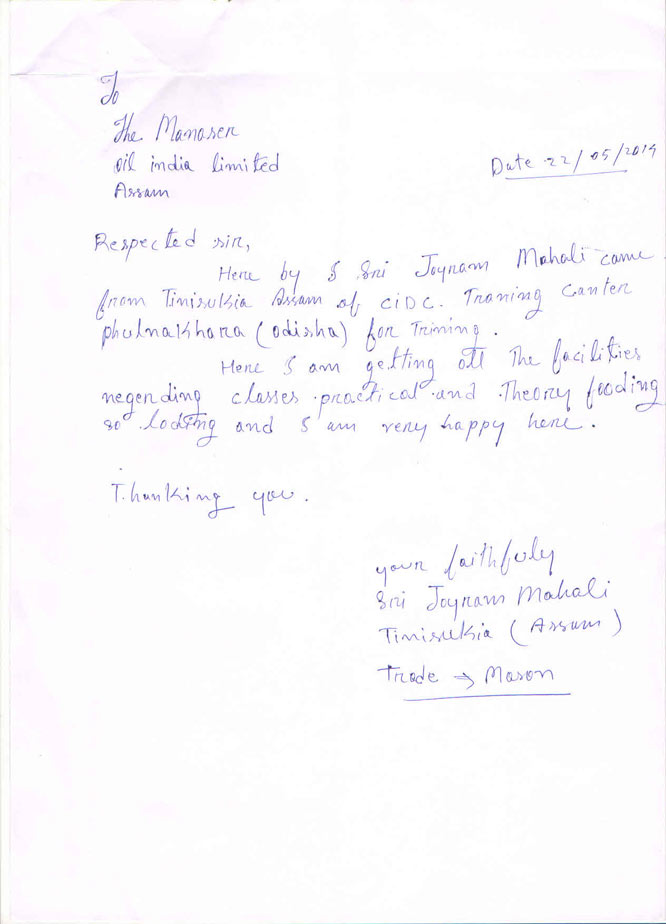 To
The Manager
oil india limited
Assam
Date 22/05/2014
Respected sir,
Here by I Sri Joyram Mahali came
from Tinisukia Assam of CiDC. Traning Canter
phulnakhara (odisha) for Trining.
Here I am getting all The facilities
regerding classes practical and Theory fooding
so loding and I am very happy here.
Thanking you.
your faithfuly
Sri Joyram Mahali
Tinisukia (Assam)
Trade → Mason